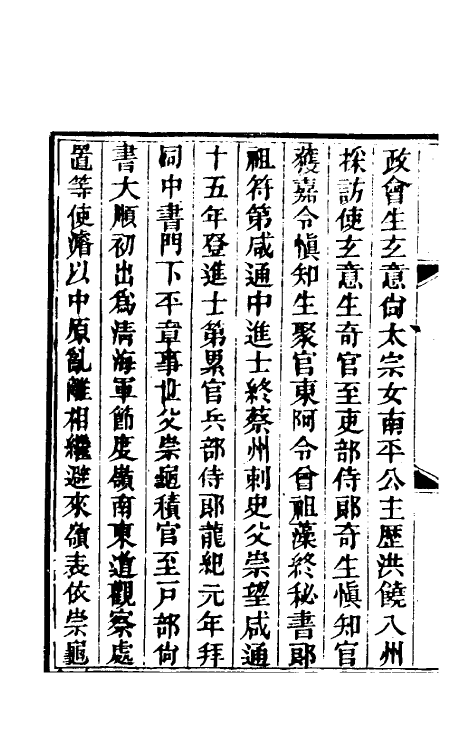 政會生玄意尙太宗女南平公主歷洪饒八州
採訪使玄意生奇官至吏部侍郞奇生愼知官
獲嘉令愼知生聚官東阿令曾祖藻終秘書郞
祖符第咸通中進士終蔡州刺史父崇望咸通
十五年登進士第累官兵部侍郞龍紀元年拜
同中書門下平章事世父崇龜積官至戸部尙
書大順初出爲淸海軍節度嶺南東道觀察處
置等使濬以中原亂離相繼避來嶺表依崇龜